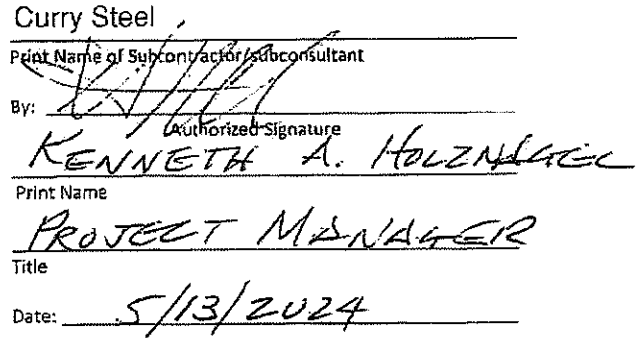 Curry Steel
Print Name of Subcontractor/subconsultant
By:
Authorized Signature
KENNETH A. HOLZNAGEL
Print Name
PROJECT MANAGER
Title
Date: 5/13/2024